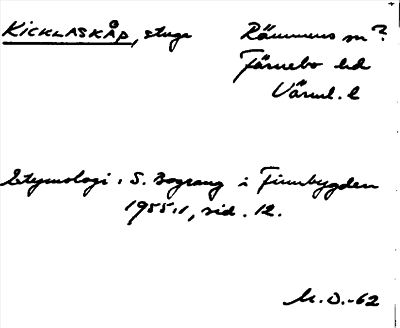 KICKLASKÅP, stuga Rämmens sn?
Färnebo hd
Värml. l
Etymologi: S. Bograng i Finnbygden
1955:1, sid. 12.
M. O. -62